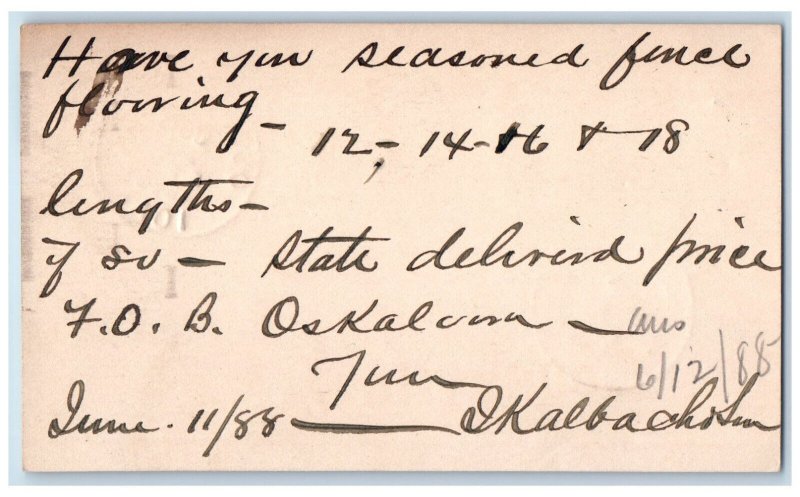 Have you seasoned fence
flooring –
12 – 14 – 16 & 18
lengths –
if so – state delivered price
F.O.B. Oskaloosa – ans
6/12/88
Yours
June 11/88 – I Kalbach & Son